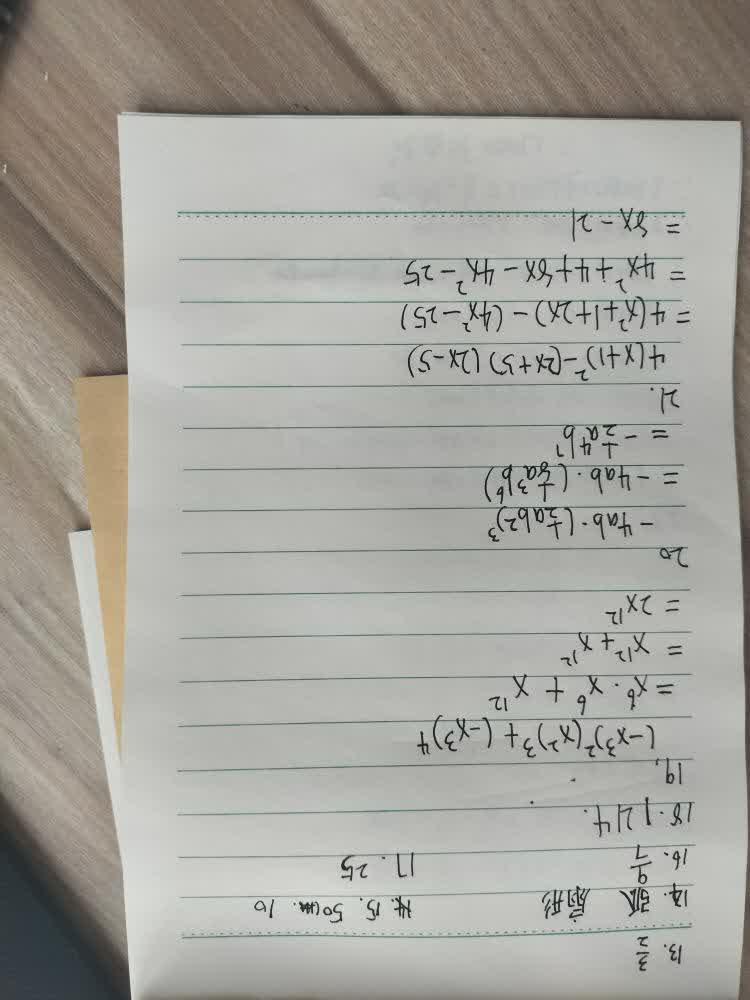 13. 3/2
14. 弧 扇形 15. 50cm. 10
16. 9/7 17. 25
18. 1214.
19.
(-x³)²(x²)³+(-x³)⁴
=x⁶·x⁶+x¹²
=x¹²+x¹²
=2x¹²
20
-4ab·(1/2ab²)³
=-4ab·(1/8a³b⁶)
=-1/2a⁴b⁷
21.
4(x+1)²-(2x+5)(2x-5)
=4(x²+1+2x)-(4x²-25)
=4x²+4+8x-4x²-25
=8x-21